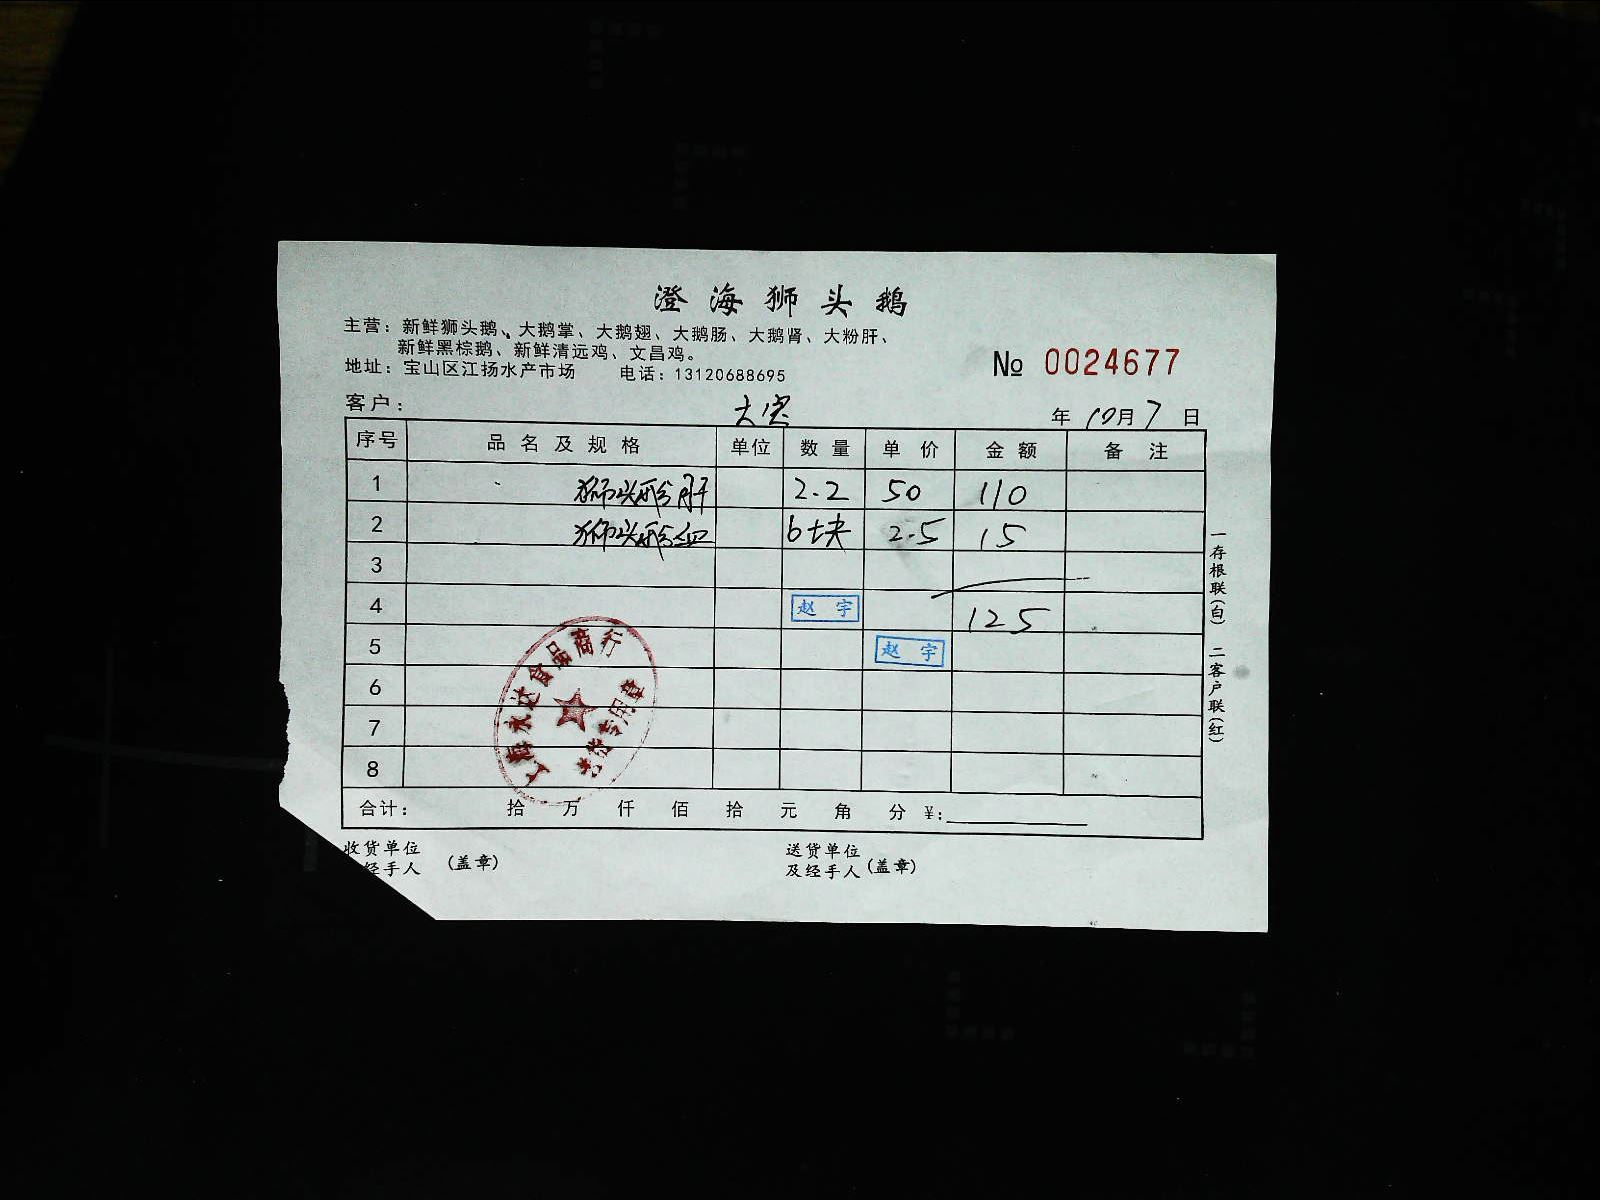 澄海狮头鹅
主营：新鲜狮头鹅、大鹅掌、大鹅翅、大鹅肠、大鹅肾、大粉肝、
新鲜黑棕鹅、新鲜清远鸡、文昌鸡。
地址：宝山区江扬水产市场 电话：13120688695
№ 0024677
客户： 年 10月 7 日
序号 品名及规格 单位 数量 单价 金额 备注
1 狮头 肝 2.2 50 110
2 狮头 血 6块 2.5 15
3
4 赵宇 125
5 赵宇
6
7
8
上海永达食品商行
专用章
合计： 拾 万 仟 佰 拾 元 角 分 ￥：
收货单位 （盖章）
经手人
送货单位
及经手人（盖章）
一存根联（白） 二客户联（红）